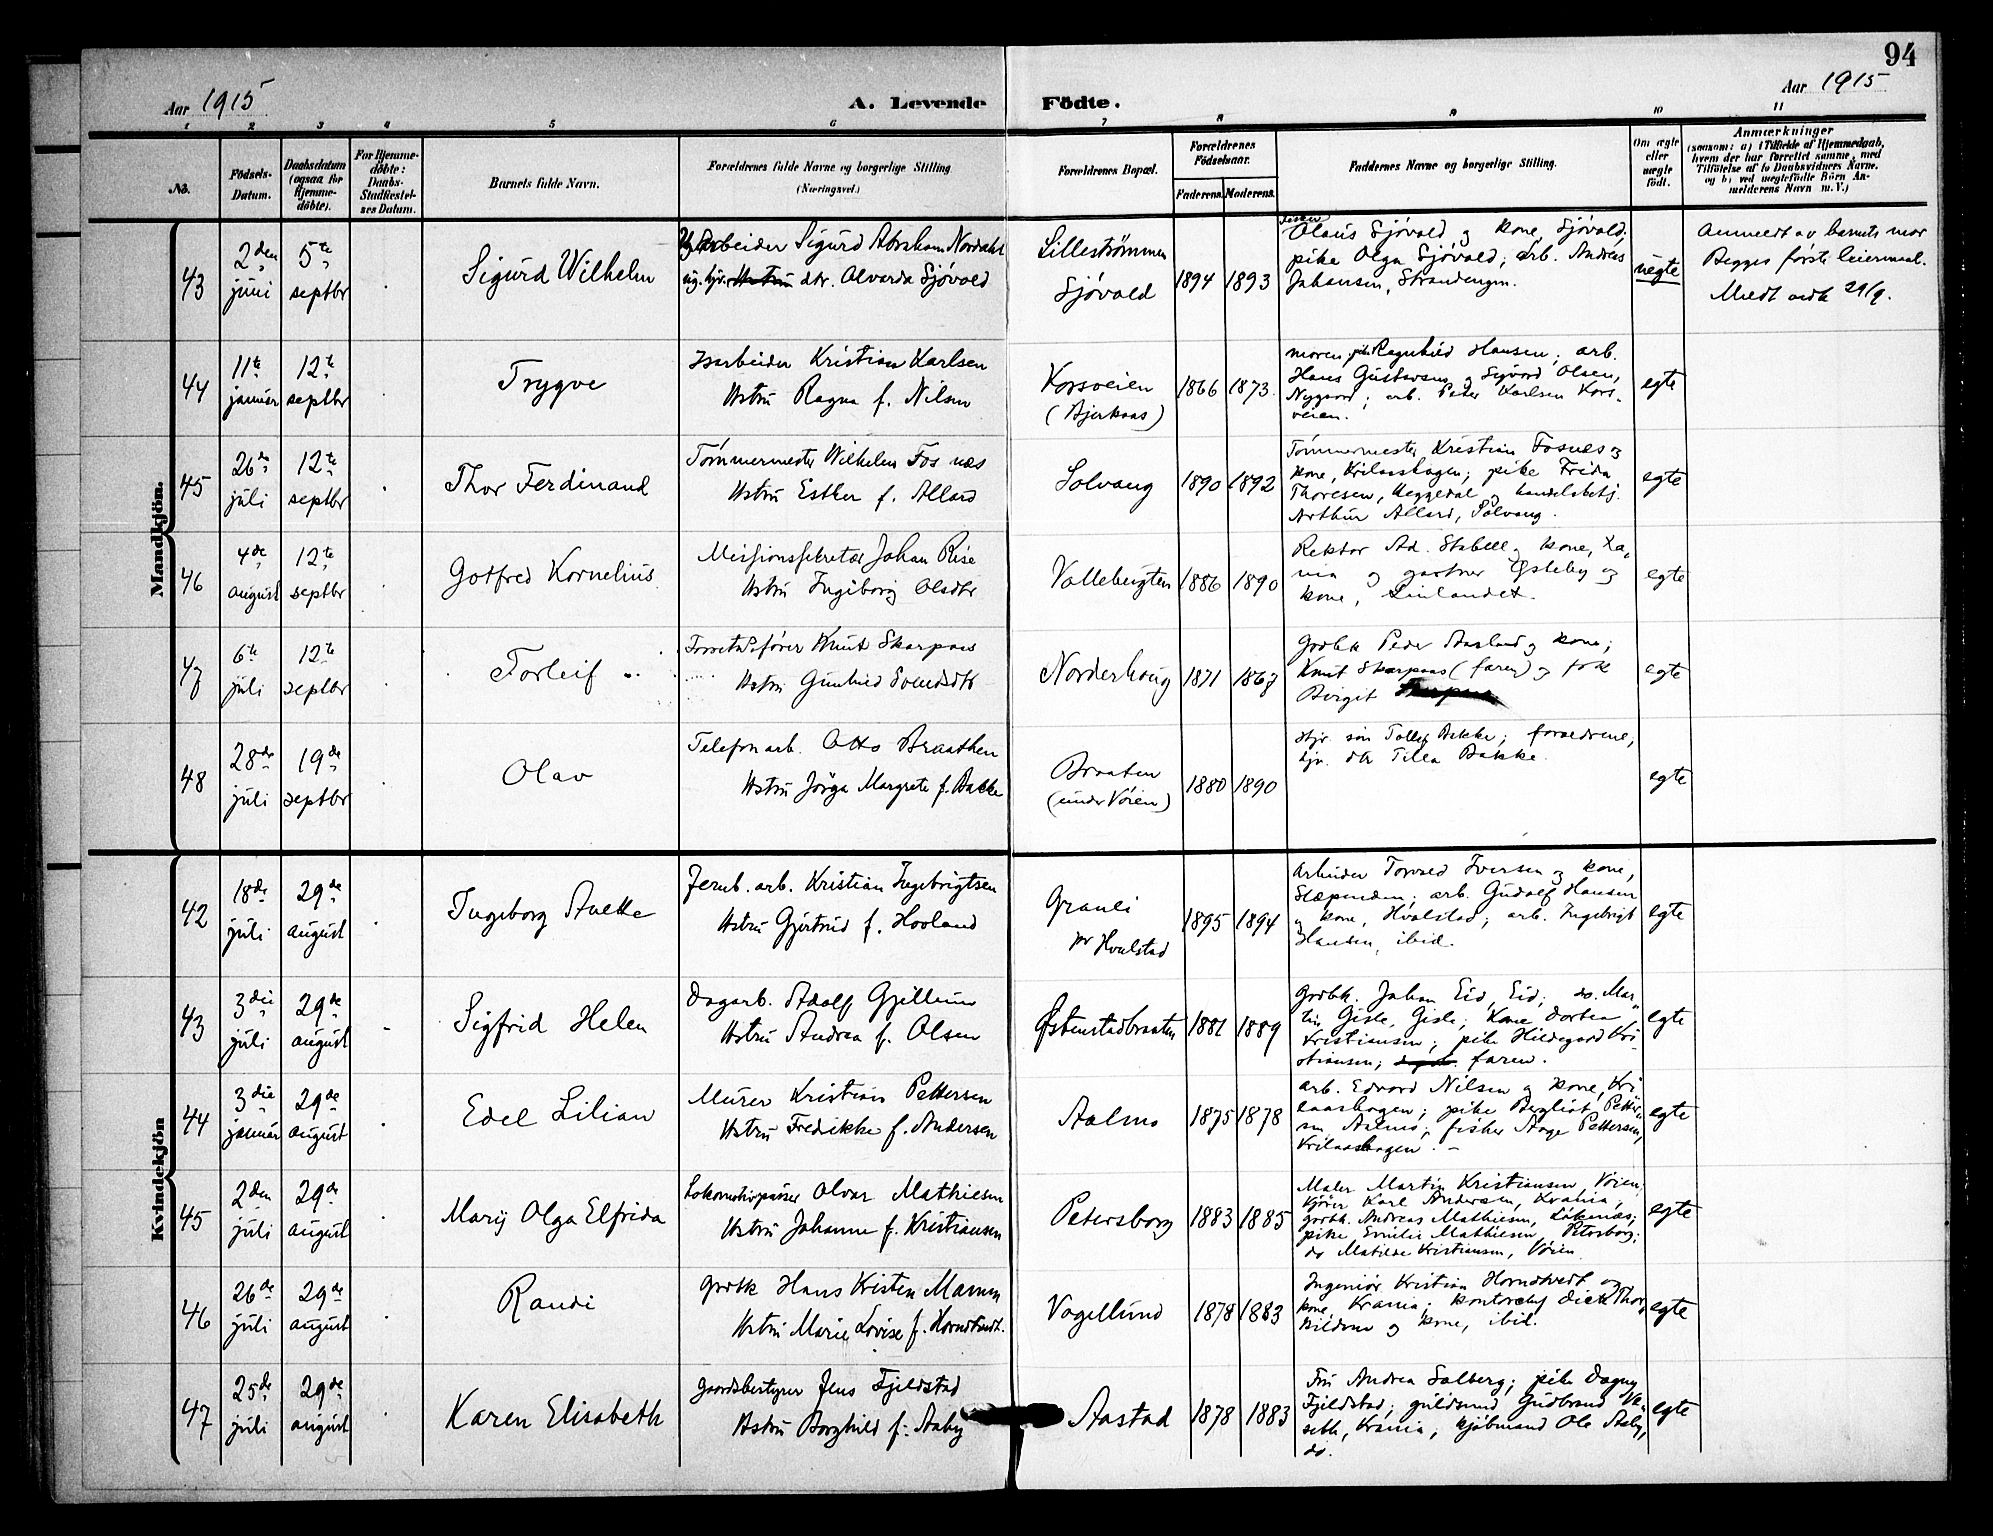 94
Aar 1915
A. Levende Födte.
Aar 1915
1 2 3 4 5 6 7 8 9 10 11
No.
Födsels-Datum.
Daabsdatum (ogsaa for Hjemme-döbte).
For Hjemme-döbte: Daabs-Stadfæstel-ses Datum.
Barnets fulde Navn.
Forældrenes fulde Navne og borgerlige Stilling (Næringsvei.)
Forældrenes Bopæl.
Forældrenes Födselsaar.
Faderens. Moderens.
Faddernes Navne og borgerlige Stilling.
Om ægte eller uægte födt.
Anmærkninger
(saasom: a) i Tilfælde af Hjemmedaab, hvem der har forrettet samme, med Tilföielse af to Daabsvidners Navne, og b) ved uægtefödte Börn An-melderens Navn m. V.)
Mandkjön.
43
2den juni
5te septbr
Sigurd Wilhelm
arbeider Sigurd Abraham Nordahl
ug. hjv. dtr. Alverda Sjövold
Lillestrømmen
Sjövold
1894 1893
Olaus Sjövold og kone, Sjövold,
pike Olga Sjövold; arb. Andreas
Johansen, Strandengen.
uegte
Anmeldt av barnets mor
Begges förste leiermaal.
Meldt 29/9.
44
11te januar
12te septbr
Trygve
Isarbeider Kristian Karlsen
Hstru Ragna f. Nilsen
Korsveien
(Bjerkaas)
1866 1873
moren, pike Ragnhild Hansen; arb.
Hans Gustavsen og Sigvard Olsen,
Nygaard; arb. Peter Karlsen Kors-
veien.
egte
45
26de juli
12te septbr
Thor Ferdinand
Tömmermester Wilhelm Fosnæs
Hstru Esther f. Allard
Solvang
1890 1892
Tömmermester Kristian Fosnes og
kone, Krilaashagen; pike Frida
Thoresen, Heggedal og handelsbetj.
Arthur Allard, Solvang.
egte
46
4de august
12te septbr
Gotfred Kornelius
Missionssekretær Johan Rise
Hstru Ingiborg Olsdtr
Vollebugten
1886 1890
Rektor Ad. Stabell og kone, Xa,
nia og gartner Ysteby og
kone,
egte
47
6te juli
12te septbr
Torleif
Knut Skarpaas
Hstru Gunhild Svendsdtr
Norderhoug
1871 1867
Grdbr. Peder Aasland og kone;
Knut Skarpaas (faren) og frk
Birgit
egte
48
28de juli
19de septbr
Olav
Telefonarb. Otto Braathen
Hstru Jörga Margrete f. Bakke
Braaten
(under Vöien)
1880 1890
hjv. sön Tollef Bakke; forældrene,
hjv. dtr Tilla Bakke.
egte
Kvindekjön
42
18de juli
29de august
Ingeborg Anette
Jernb. arb. Kristian Ingebrigtsen
Hstru Gjertrud f. Hovland
Granli
pr Hvalstad
1895 1894
Arbeider Torvald Iversen og kone,
Slæpenden; arb. Gudolf Hansen
og kone, Hvalstad; arb. Ingebrigt
Hansen, ibid.
egte
43
3die juli
29de august
Sigfrid Helen
Dagarb. Adolf Gjellum
Hstru Andrea f. Olsen
Østenstadbraaten
1881 1889
Grdbr. Johan Eid, Eid; do. Mar-
tin Gisle, Gisle; Kone Dortea
Kristiansen; pike Hildegard Kri-
stiansen; faren.
egte
44
3die januar
29de august
Edel Lilian
Murer Kristian Pettersen
Hstru Fredrikke f. Andersen
Aalmo
1875 1878
arb. Edvard Nilsen og kone, Kri
laashagen; pike Bergliot Petter-
sen Aalmo; fisker Aage Pettersen,
Krilaashagen. –
egte
45
2den juli
29de august
Mary Olga Elfrida
Lokomotivpudser Olvar Mathiesen
Hstru Johanne f. Kristiansen
Petersborg
1883 1885
Maler Martin Kristiansen, Vöien;
kjörer Karl Andersen, Krania;
grdbr. Andreas Mathiesen, Löknæs;
pike Emilie Mathiesen Petersborg;
do Matilde Kristiansen, Vöien.
egte
46
26de juli
29de august
Randi
Grdbr Hans Kristen Mamen
Hstru Marie Lovise f. Horndtvedt.
Vogellund
1878 1883
Ingeniör Kristian Horndtvedt og
kone, Krania; kontorchef Dick Thor
kildsen og kone, ibid.
egte
47
25de juli
29de august
Karen Elisabeth
Gaardsbestyrer Jens Fjeldstad
Hstru Borghild f. Aaby
Aastad
1878 1883
Fru Andrea Solberg; pike Dagny
Fjeldstad; guldsmed Gudbrand Ve-
seth, Krania; kjöbmand Ole Aaby,
do.
egte